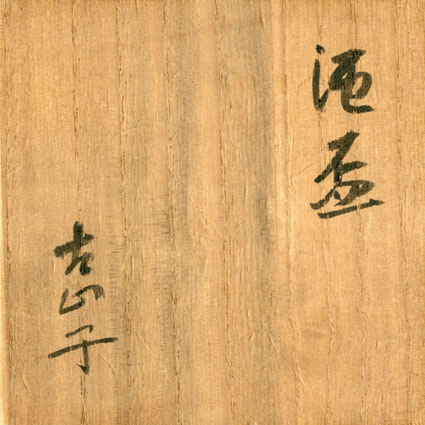 酒盃
古山子